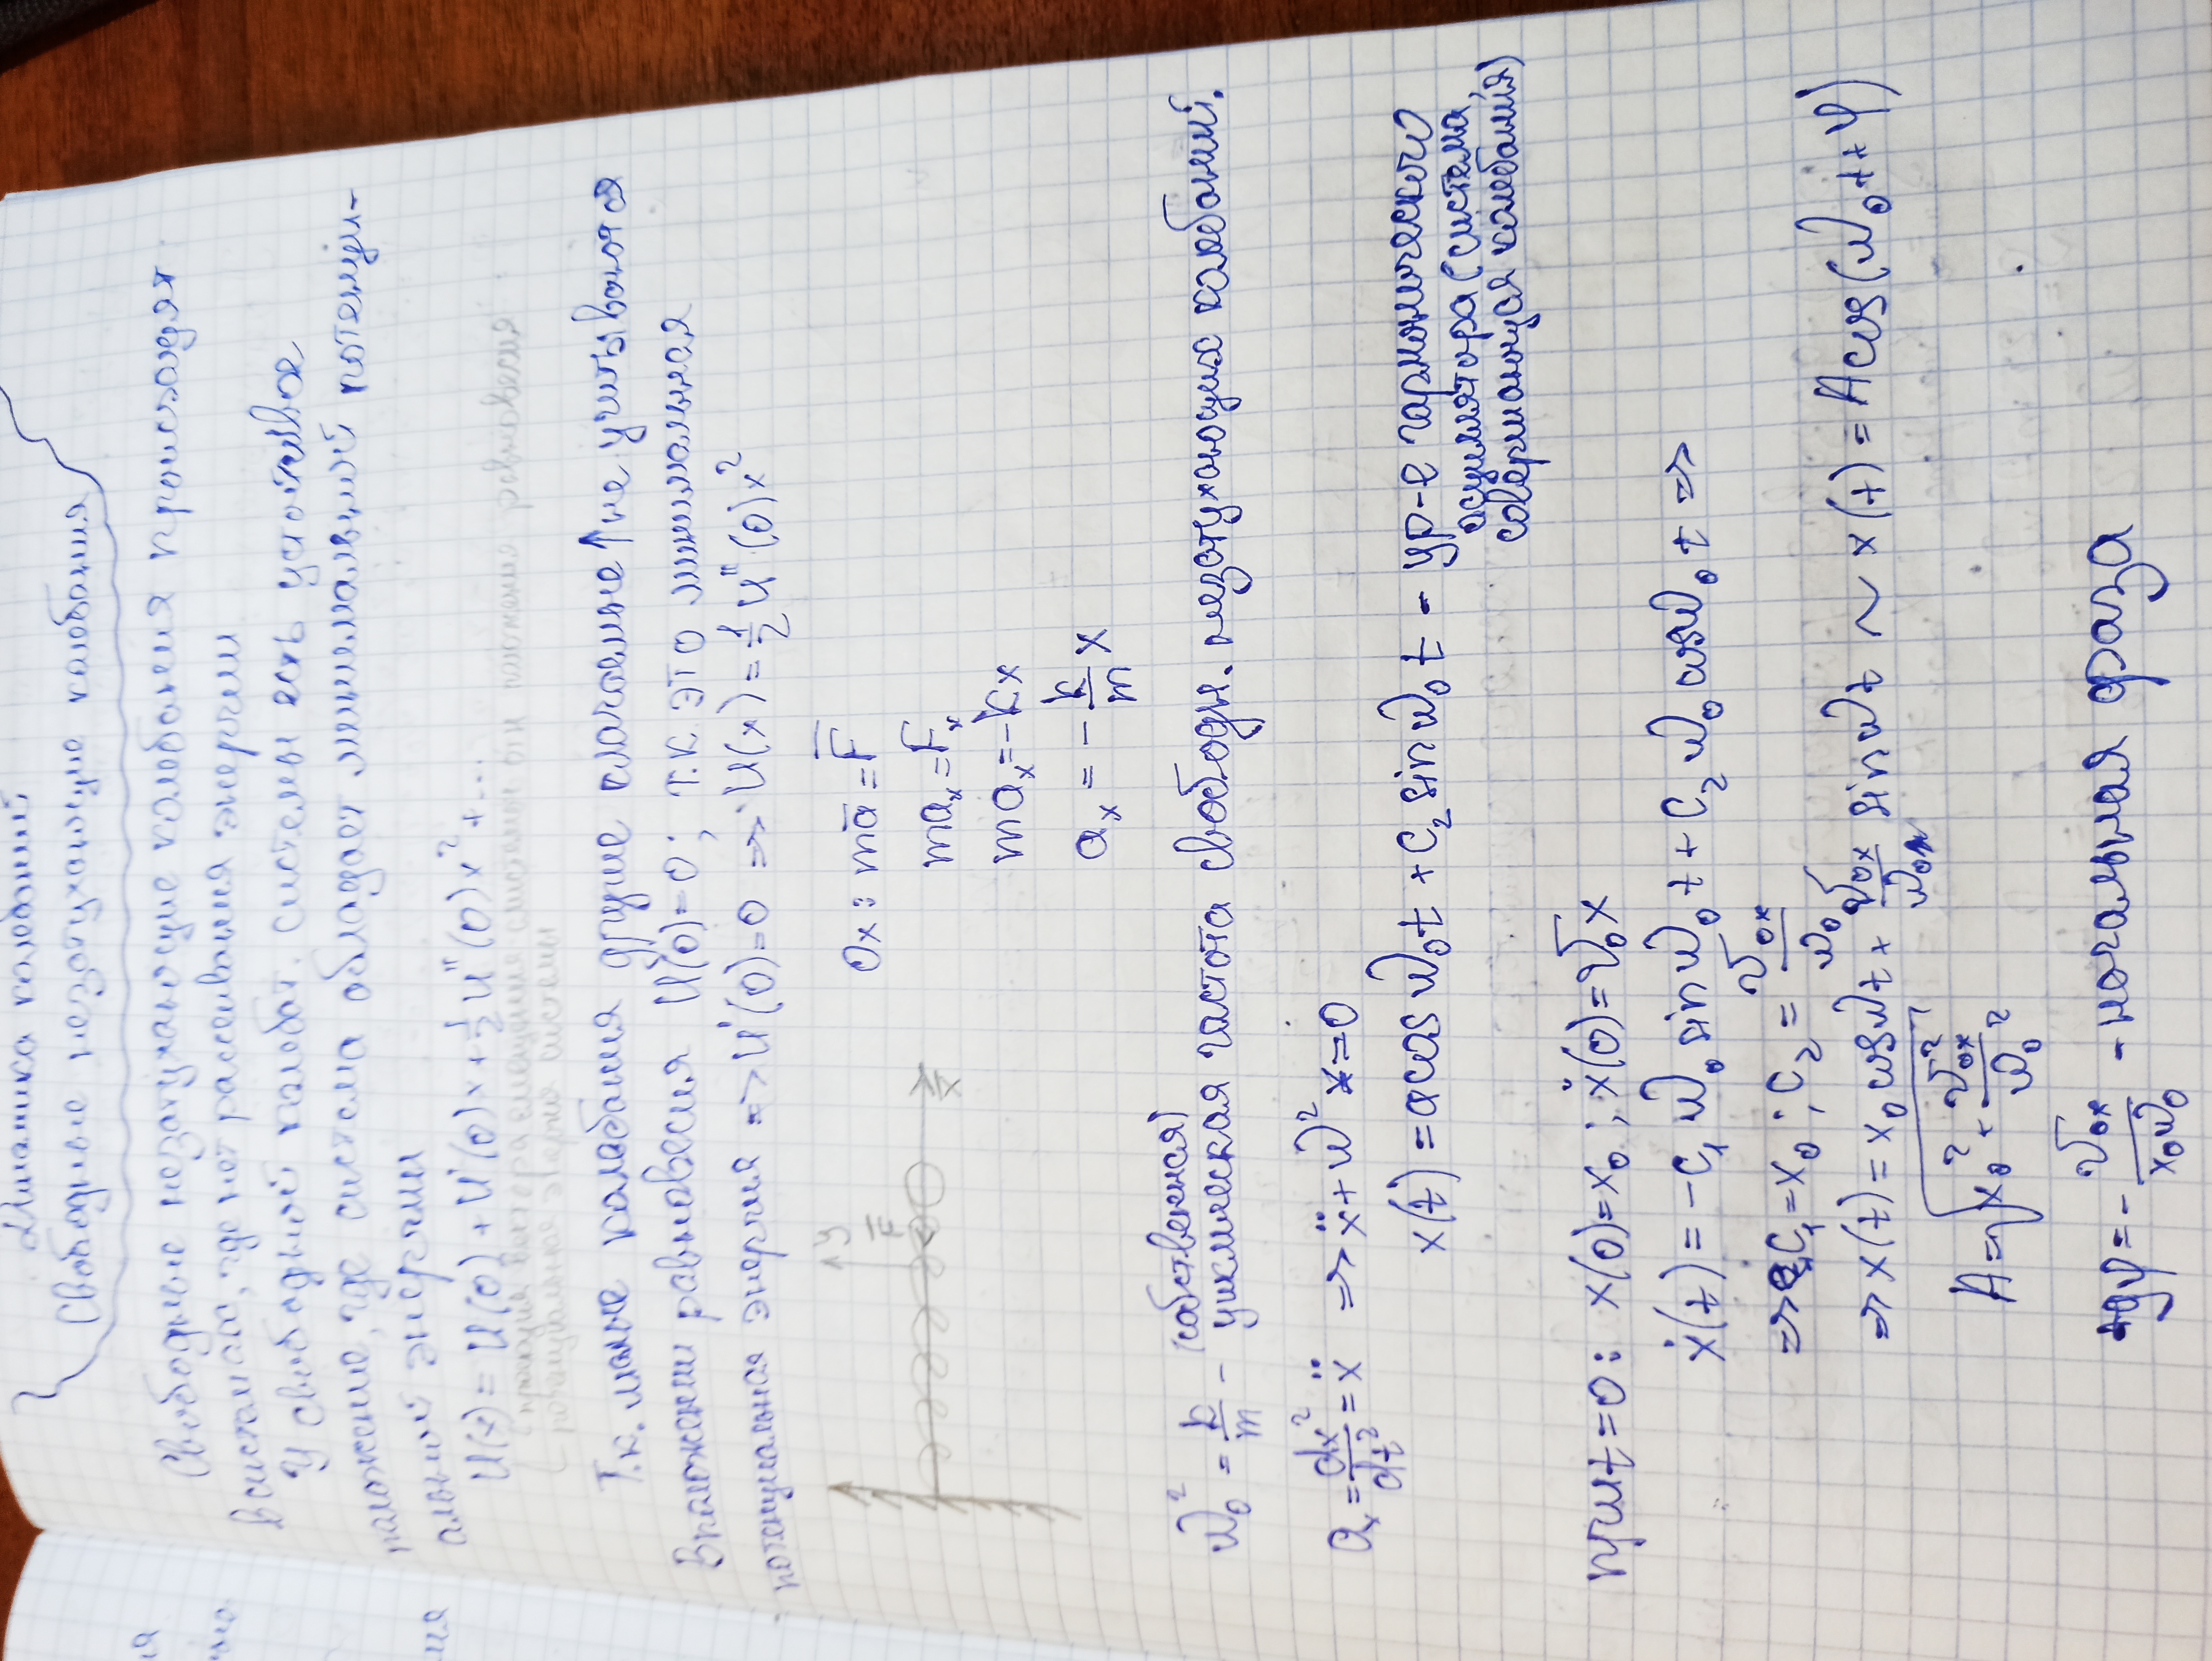 Динамика колебаний
Свободные незатухающие колебания
Свободные незатухающие колебания происходят
в системах, где нет рассеивания энергии
У свободной колебат. системы есть устойчивое
положение, где система обладает минимальной потенци-
альной энергии
U(x) = U(0) + U'(0)x + 1/2 U''(0)x² + ...
проекция вектора смещения системы от положения равновесия
потенциальная энергия системы
Т.к. малые колебания другие слагаемые ↑ не учитываются
В положении равновесия U(0)=0; т.к. это минимальная
потенциальная энергия => U'(0)=0 => U(x) = 1/2 U''(0)x²
y
F̄
x
Ox: mā = F̄
maₓ = Fₓ
maₓ = -kx
aₓ = - k/m x
(собственная)
ω₀² = k/m - циклическая частота свободн. незатухающих колебаний.
aₓ = dx²/dt² = ẍ => ẍ + ω² x = 0
x(t) = a cos ω₀t + c₂ sin ω₀t - ур-е гармонического
осциллятора (система,
совершающуся колебания)
при t=0: x(0)=x₀; ẋ(0)=v₀x
ẋ(t) = -c₁ ω₀ sin ω₀t + c₂ ω₀ cos ω₀t =>
=> c₁ = x₀; c₂ = v₀ₓ/ω₀
=> x(t) = x₀ cos ωt + v₀ₓ/ω₀ sin ωt ~ x(t) = A cos(ω₀t + φ)
A = √(x₀² + v₀ₓ²/ω₀²)
tgφ = - v₀ₓ/x₀ω₀ - начальная фаза